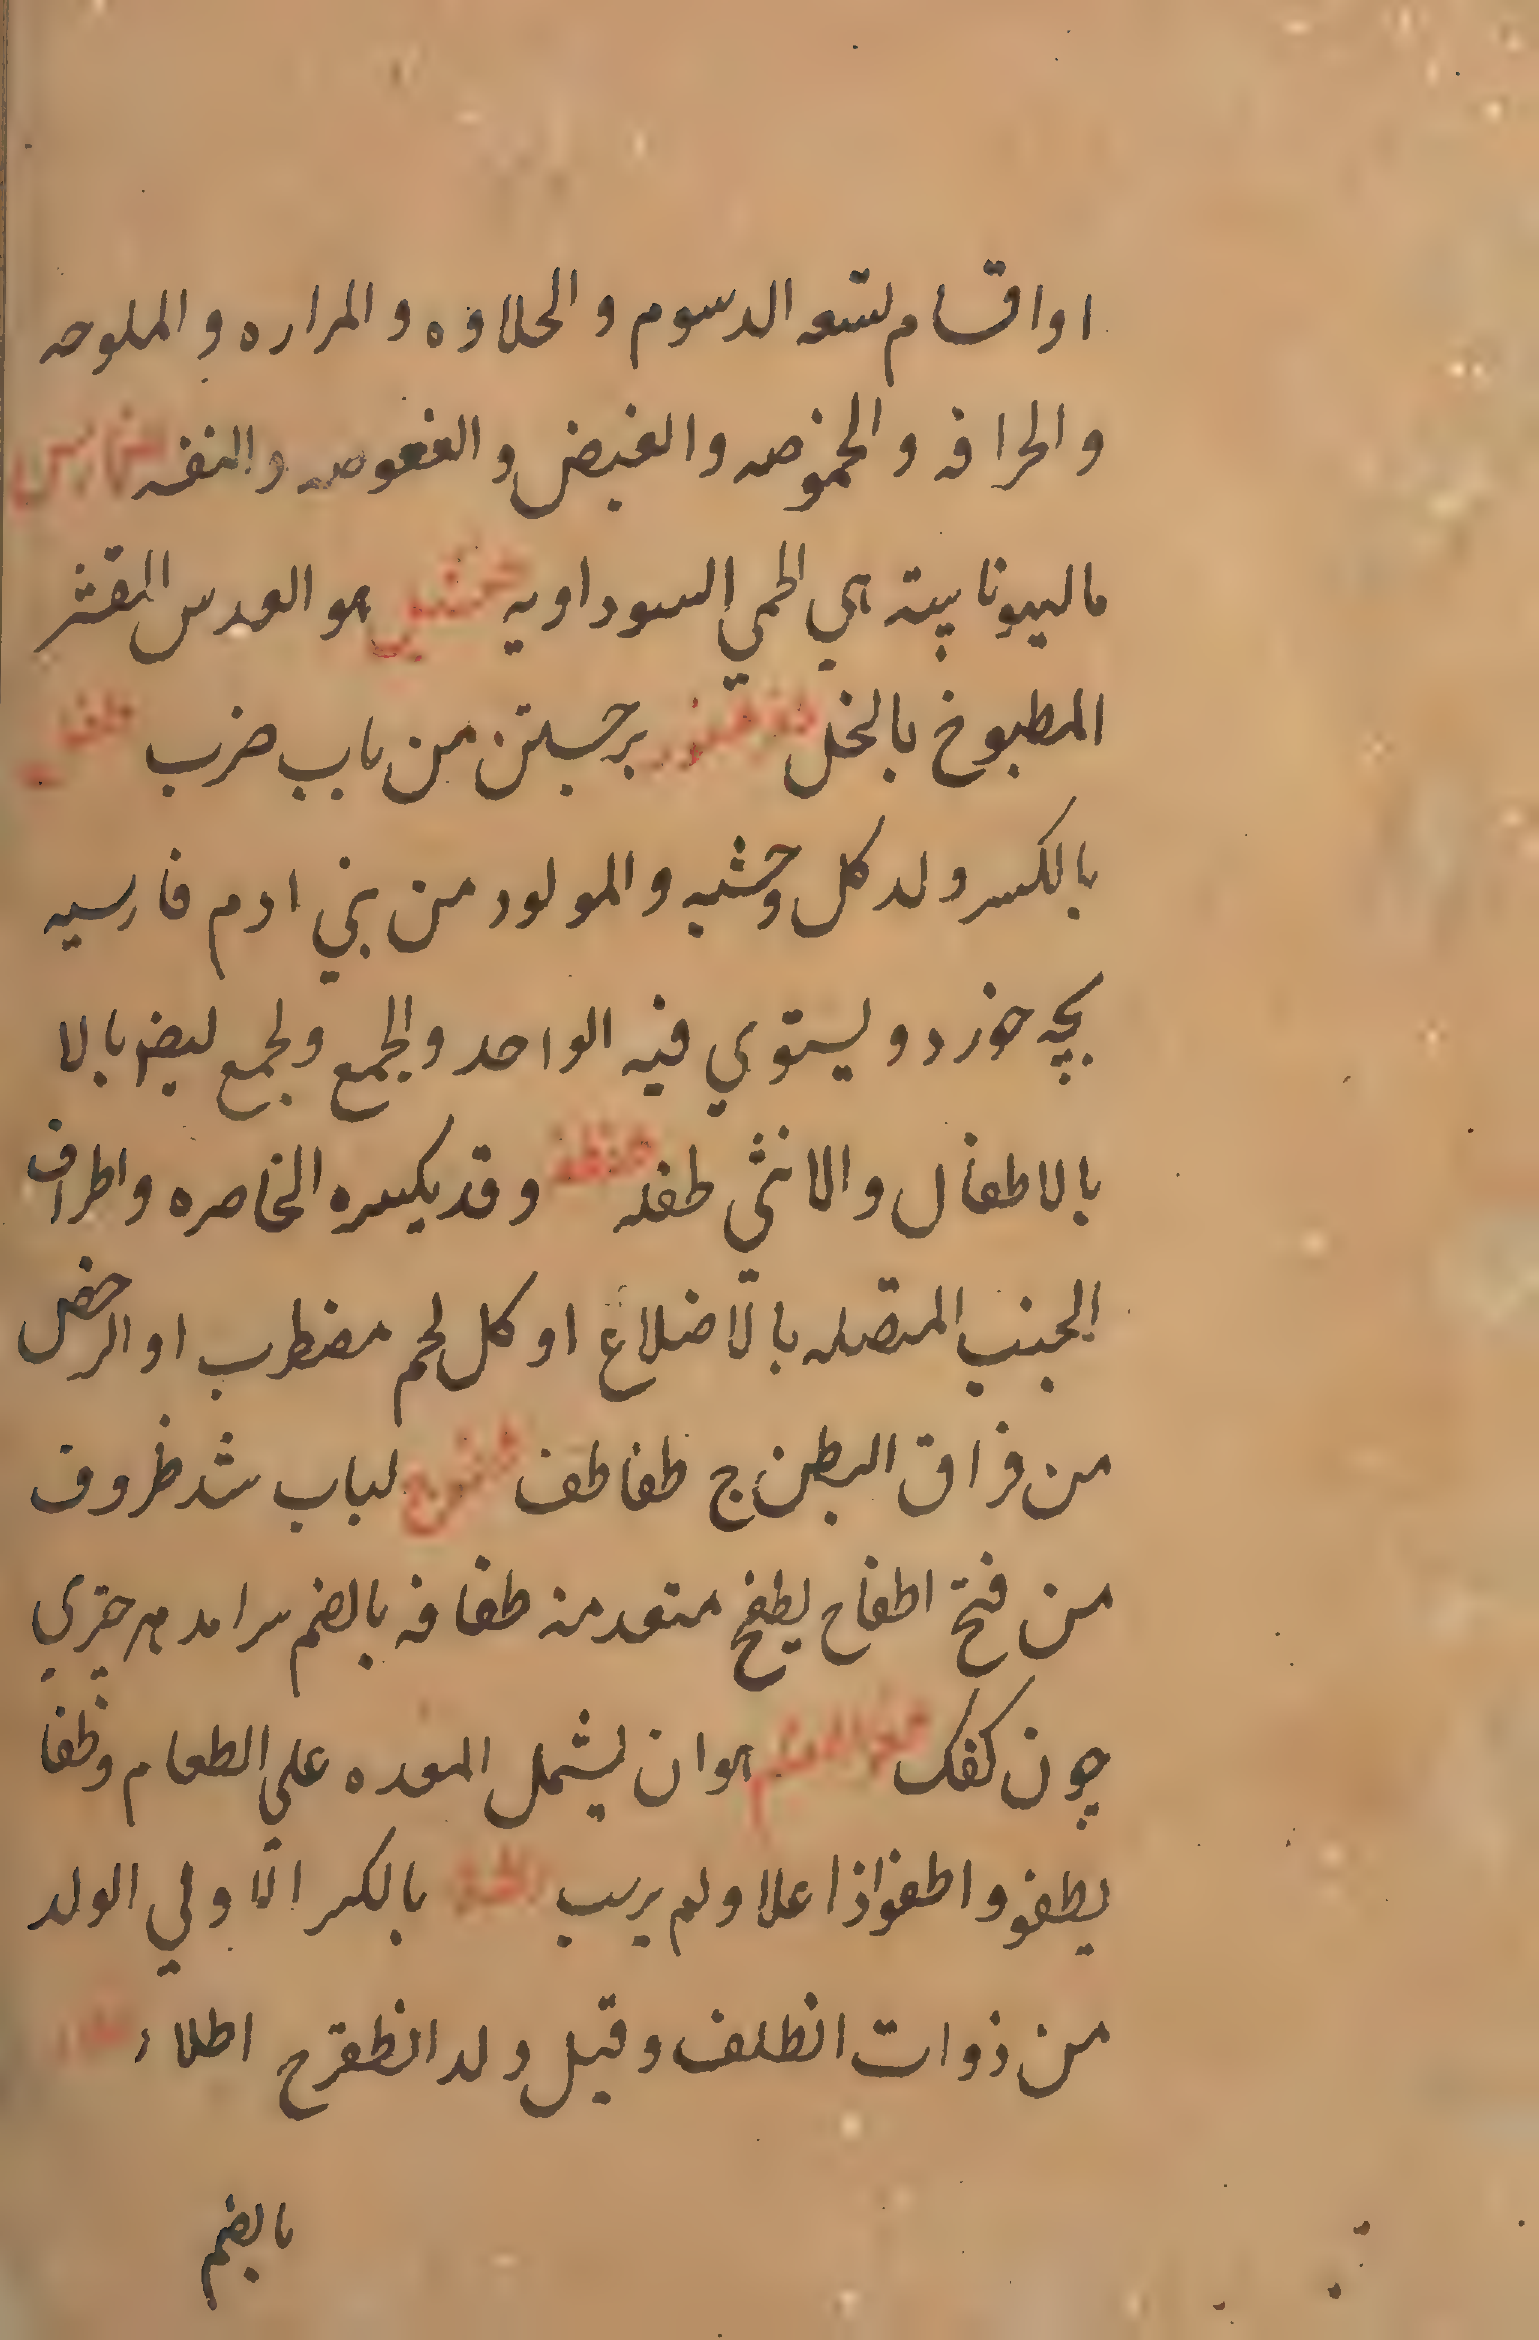 او اقسام لتسعه الدسوم و الحلاوه و المراره و الملوحه
و الحرافه و الحموضه و القبض و العفوصه و التفه
ماليبوناپيته هي الحمي السوداويه هو العدس المقشر
المطبوخ بالخل برجستن من باب ضرب
بالكسر ولد كل وحشيه و المولود من بني ادم فارسيه
بچه خورد و يستوي فيه الواحد والجمع و لجمع ايضا بالا
بالاطفال و الانثي طفله و قد يكسره الخاصره و اطراف
الجنب المتصله بالاضلاع او كل لحم مضطرب او الرخص
من فراق البطن ج طفاطف لباب شد ظروف
من فتح اطفاح يطفح متعد منه طفافه بالضم سرامد هر چيزي
چون كفك هو ان يشمل المعده علي الطعام و طفا
يطفو و اطفو اذا علا و لم يرسب بالكسر الاولي الولد
من ذوات الظلف و قيل ولد الظفر ج اطلاء
بالضم